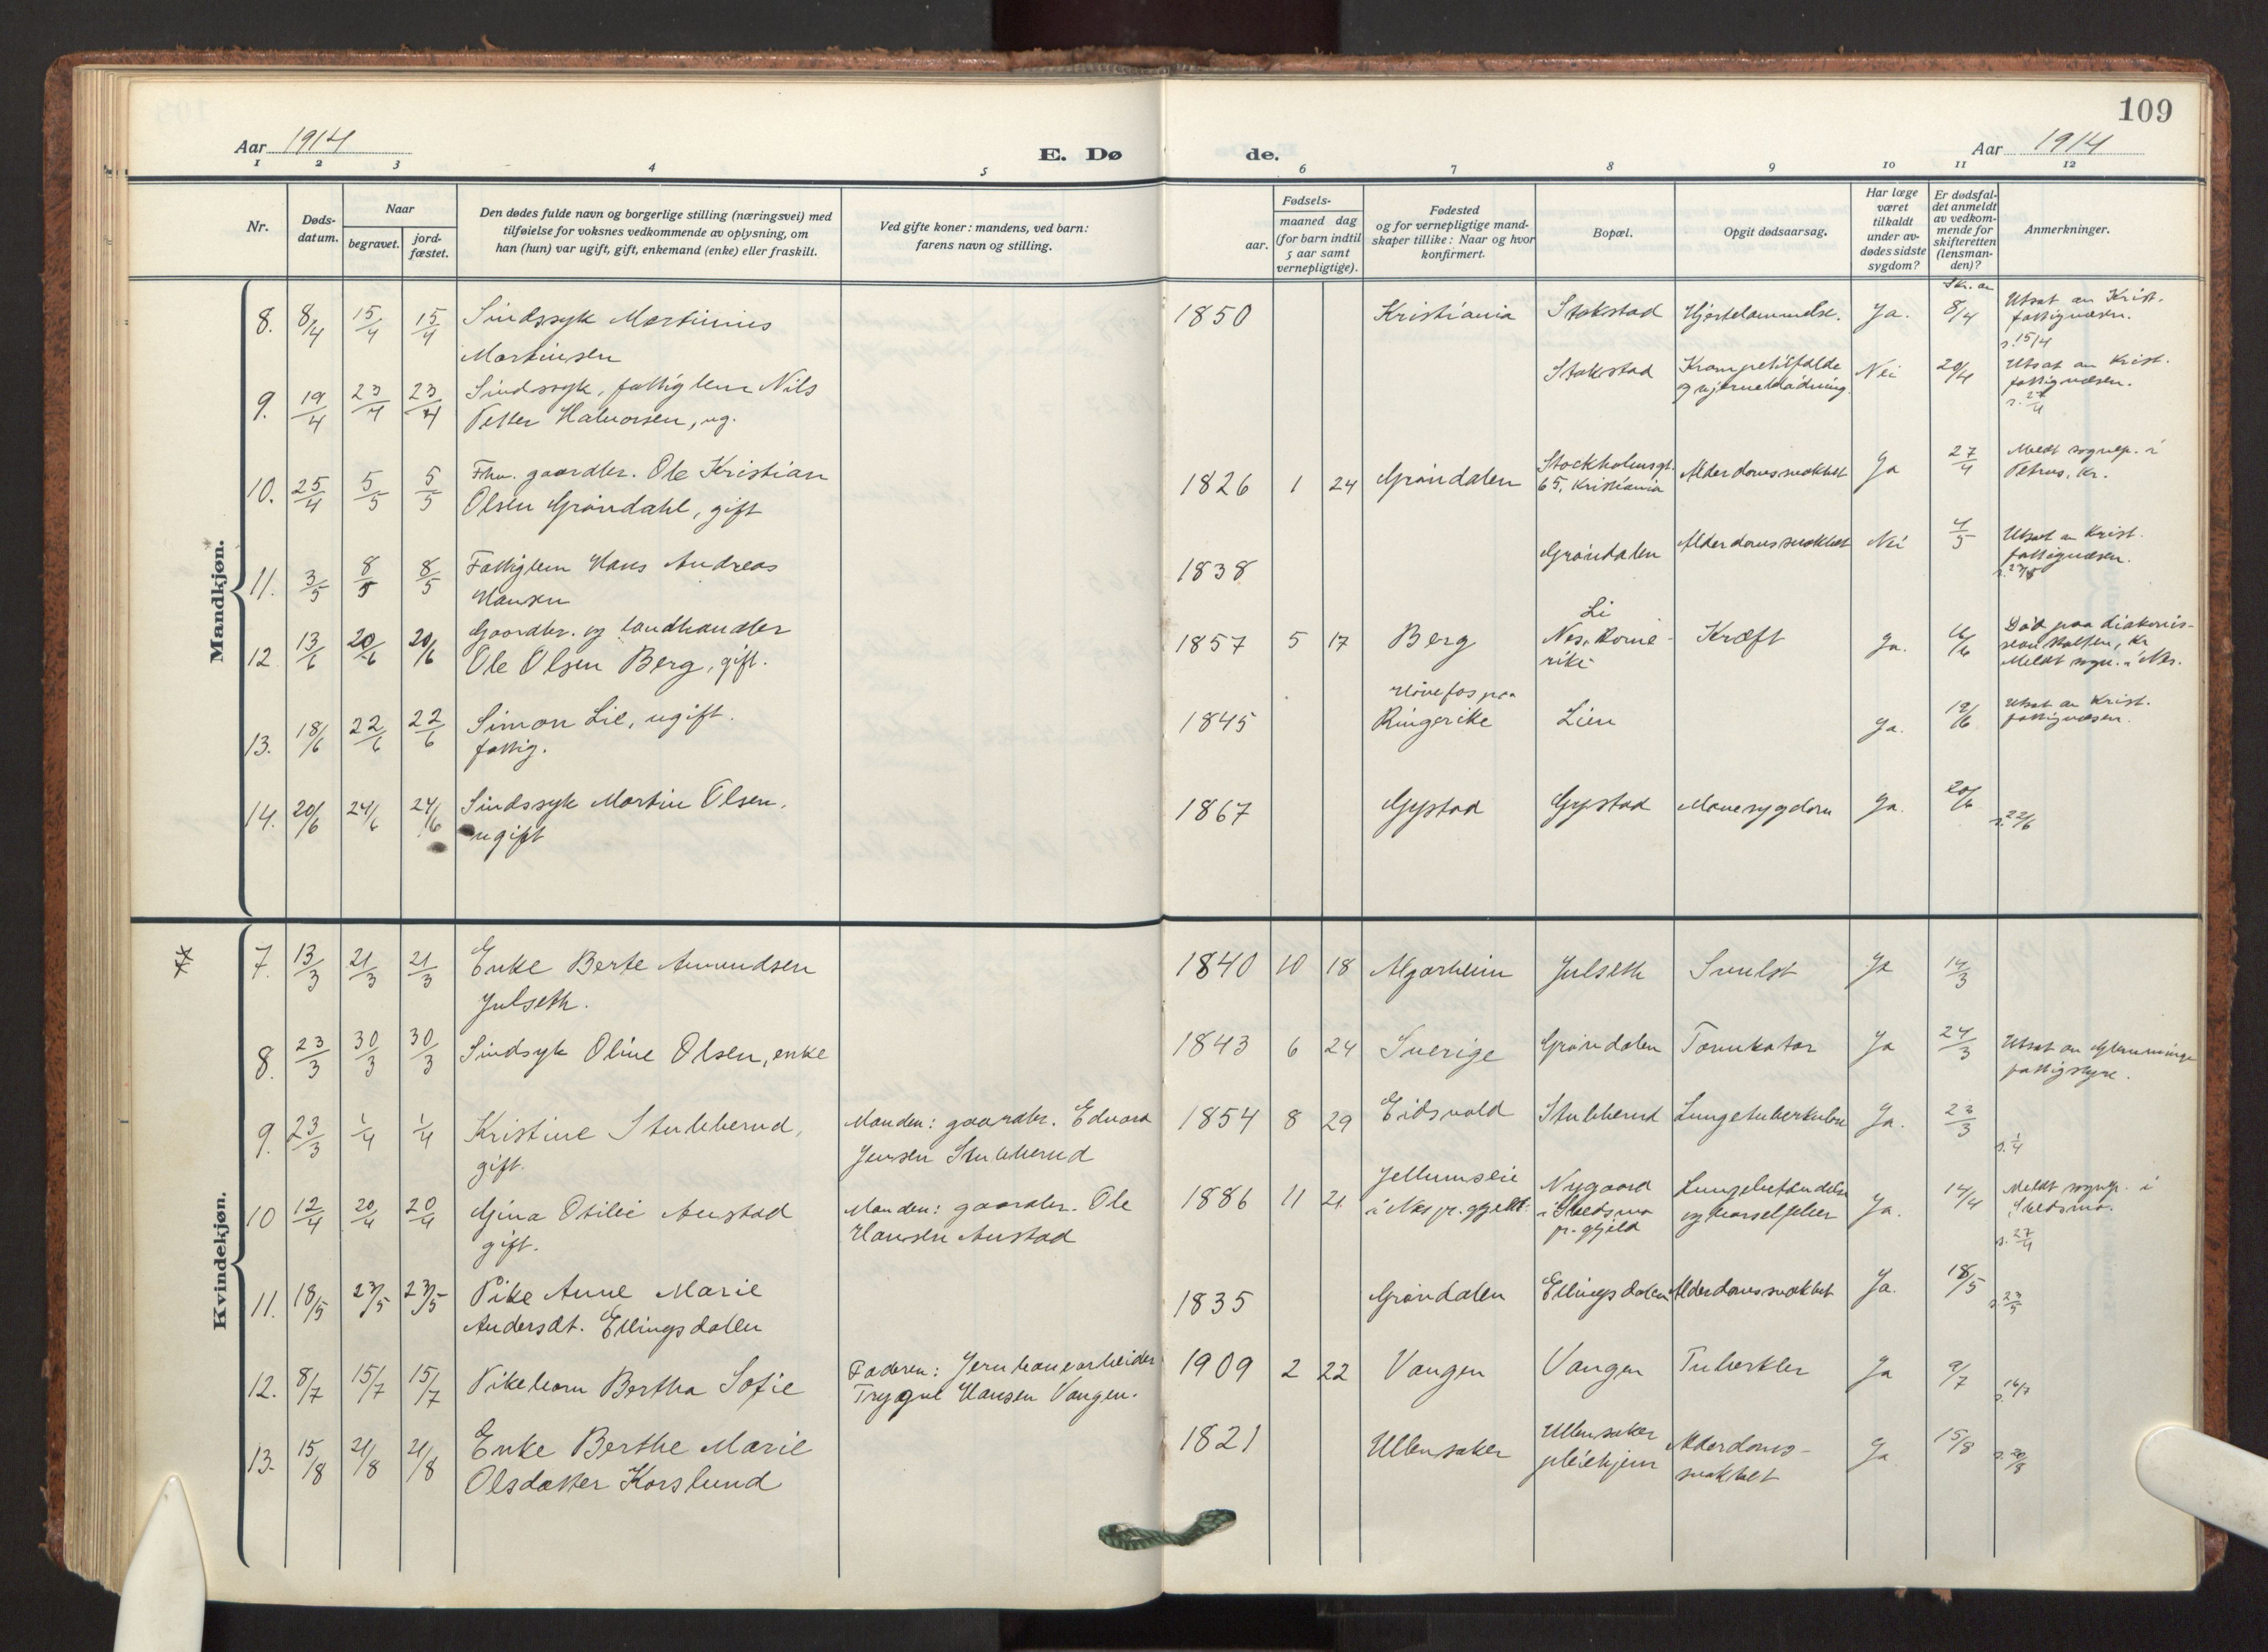 109
Aar 1914
E. Dø
de.
Aar 1914
1 2 3 4 5 6 7 8 9 10 11 12
Nr.
Døds-
datum.
Naar
begravet.
jord-
fæstet.
Den dødes fulde navn og borgerlige stilling (næringsvei) med
tilføielse for voksnes vedkommende av oplysning, om
han (hun) var ugift, gift, enkemand (enke) eller fraskilt.
Ved gifte koner: mandens, ved barn:
farens navn og stilling.
Fødsels-
aar.
maaned dag
(for barn indtil
5 aar samt
vernepligtige).
Fødested
og for vernepligtige mand-
skaper tillike: Naar og hvor
konfirmert.
Bopæl.
Opgit dødsaarsag.
Har læge
været
tilkaldt
under av-
dødes sidste
sygdom?
Er dødsfal-
det anmeldt
av vedkom-
mende for
skifteretten
(lensman-
den)?
Anmerkninger.
Mandkjøn.
8. 8/4 15/4 15/4 Sindssyk Martinius
Martinsen
1850 Kristiania Stokstad Hjertelammelse. Ja. 8/4
Utsat av Krist.
fattigvæsen.
s. 15/4
9. 19/4 23/4 23/4 Sindssyk, fattiglem Nils
Petter Halvorsen, ug.
Stokstad Krampetilfælde
og hjerneblødning. Nei 20/4
Utsat av Krist.
fattigvæsen.
10. 25/4 5/5 5/5 Fhv. gaardbr. Ole Kristian
Olsen Grøndahl, gift
1826 1 24 Grøndalen Stockholmsgt.
65, Kristiania Alderdomssvakhet Ja 27/4
Meldt sognep. i
Petrus, Kr.
11. 3/5 8/5 8/5 Fattiglem Hans Andreas
Hansen
1838 Grøndalen Alderdomssvakhet Nei 4/5
Utsat av Krist.
fattigvæsen.
12 13/6 20/6 20/6 Gaardbr. og landhandler
Ole Olsen Berg, gift.
1857 5 17 Berg Li
Nes, Rome-
rike Kræft Ja.
Død paa diakonis-
seanstalten, Kr.
Meldt sogn. i Nes.
13. 18/6 22/6 22/6 Simon Lie, ugift.
fattig.
1845 Hønefos paa
Ringerike Lien Ja. 19/6
Utsat av Krist.
fattigvæsen.
14. 20/6 24/6 24/6 Sindssyk Martin Olsen,
ugift
1867 Gystad Gystad Mavesygdom Ja. 20/6 s. 22/6
Kvindekjøn.
7. 13/3 21/3 21/3 Enke Berte Amundsen
Julseth.
1840 10 18 Algarheim Julseth Svulst Ja 14/3
8. 23/3 30/3 30/3 Sindsyk Oline Olsen, enke
1843 6 24 Sverige Grøndalen Ja 24/3
Utsat av Glemminge
fattigstyre.
9. 23/3 1/4 1/4 Kristine Stubberud,
gift.
Manden: gaardbr. Edvard
Jensen Stubberud
1854 8 29 Eidsvold Stubberud Lungetuberkulose Ja. 23/3 s. 1/4
10 12/4 20/4 20/4 Gina Otilie Austad
gift.
Manden: gaardbr. Ole
Hansen Austad
1886 11 21 Jellumseie
i Nes pr.gjeld. Nygaard
i Skedsmo
pr. gjeld Lungebetændelse
og barselfeber Ja. 14/4
Meldt sognep. i
Skedsmo.
s. 27/4
11. 18/5 23/5 23/5 Pike Anne Marie
Andersdt. Ellingsdalen
1835 Grøndalen Ellingsdalen Alderdomssvakhet Ja. 18/5 s. 23/5
12. 8/7 15/7 15/7 Pikebarn Bertha Sofie
Faderen: Jernbanearbeider
Trygve Hansen Vangen.
1909 2 22 Vangen Vangen Tuberkler Ja 9/7 s. 16/7
13. 15/8 21/8 21/8 Enke Berthe Marie
Olsdatter Korslund
1821 Ullensaker Ullensaker
pleiehjem Alderdoms-
svakhet Ja 15/8 s. 20/8